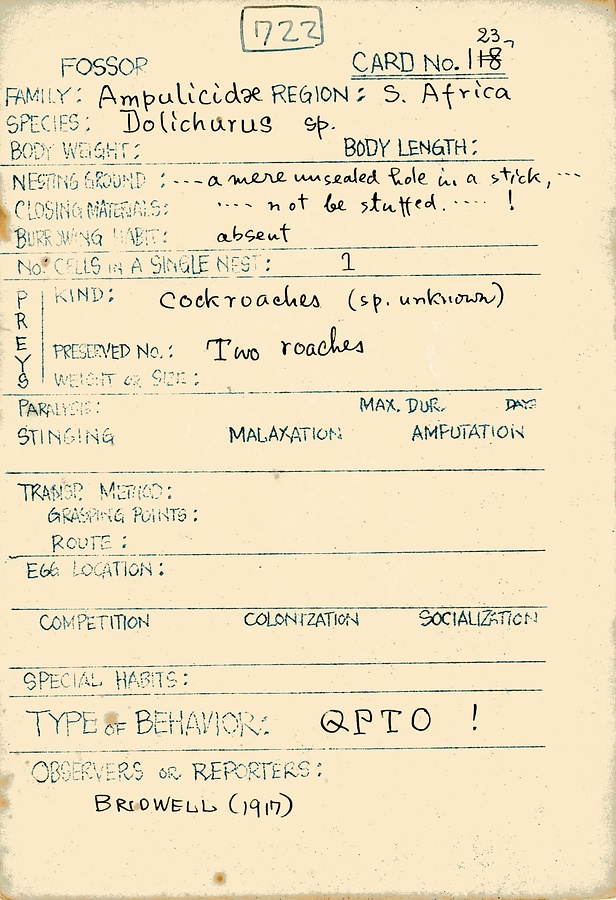 722
23
FOSSOR CARD No. 118
FAMILY: Ampulicidae REGION: S. Africa
SPECIES: Dolichurus sp.
BODY WEIGHT: BODY LENGTH:
NESTING GROUND: ---- a mere unsealed hole in a stick, ---
CLOSING MATERIALS: ---- not be stuffed. ---- !
BURROWING HABIT: absent
No. CELLS IN A SINGLE NEST: 1
PREYS
KIND: Cockroaches (sp. unknown)
PRESERVED No.: Two roaches
WEIGHT OR SIZE:
PARALYSIS: MAX. DUR. DAYS
STINGING MALAXATION AMPUTATION
TRANSP. METHOD:
GRASPING POINTS:
ROUTE:
EGG LOCATION:
COMPETITION COLONIZATION SOCIALIZATION
SPECIAL HABITS:
TYPE OF BEHAVIOR: QPTO !
OBSERVERS OR REPORTERS:
BRIDWELL (1917)